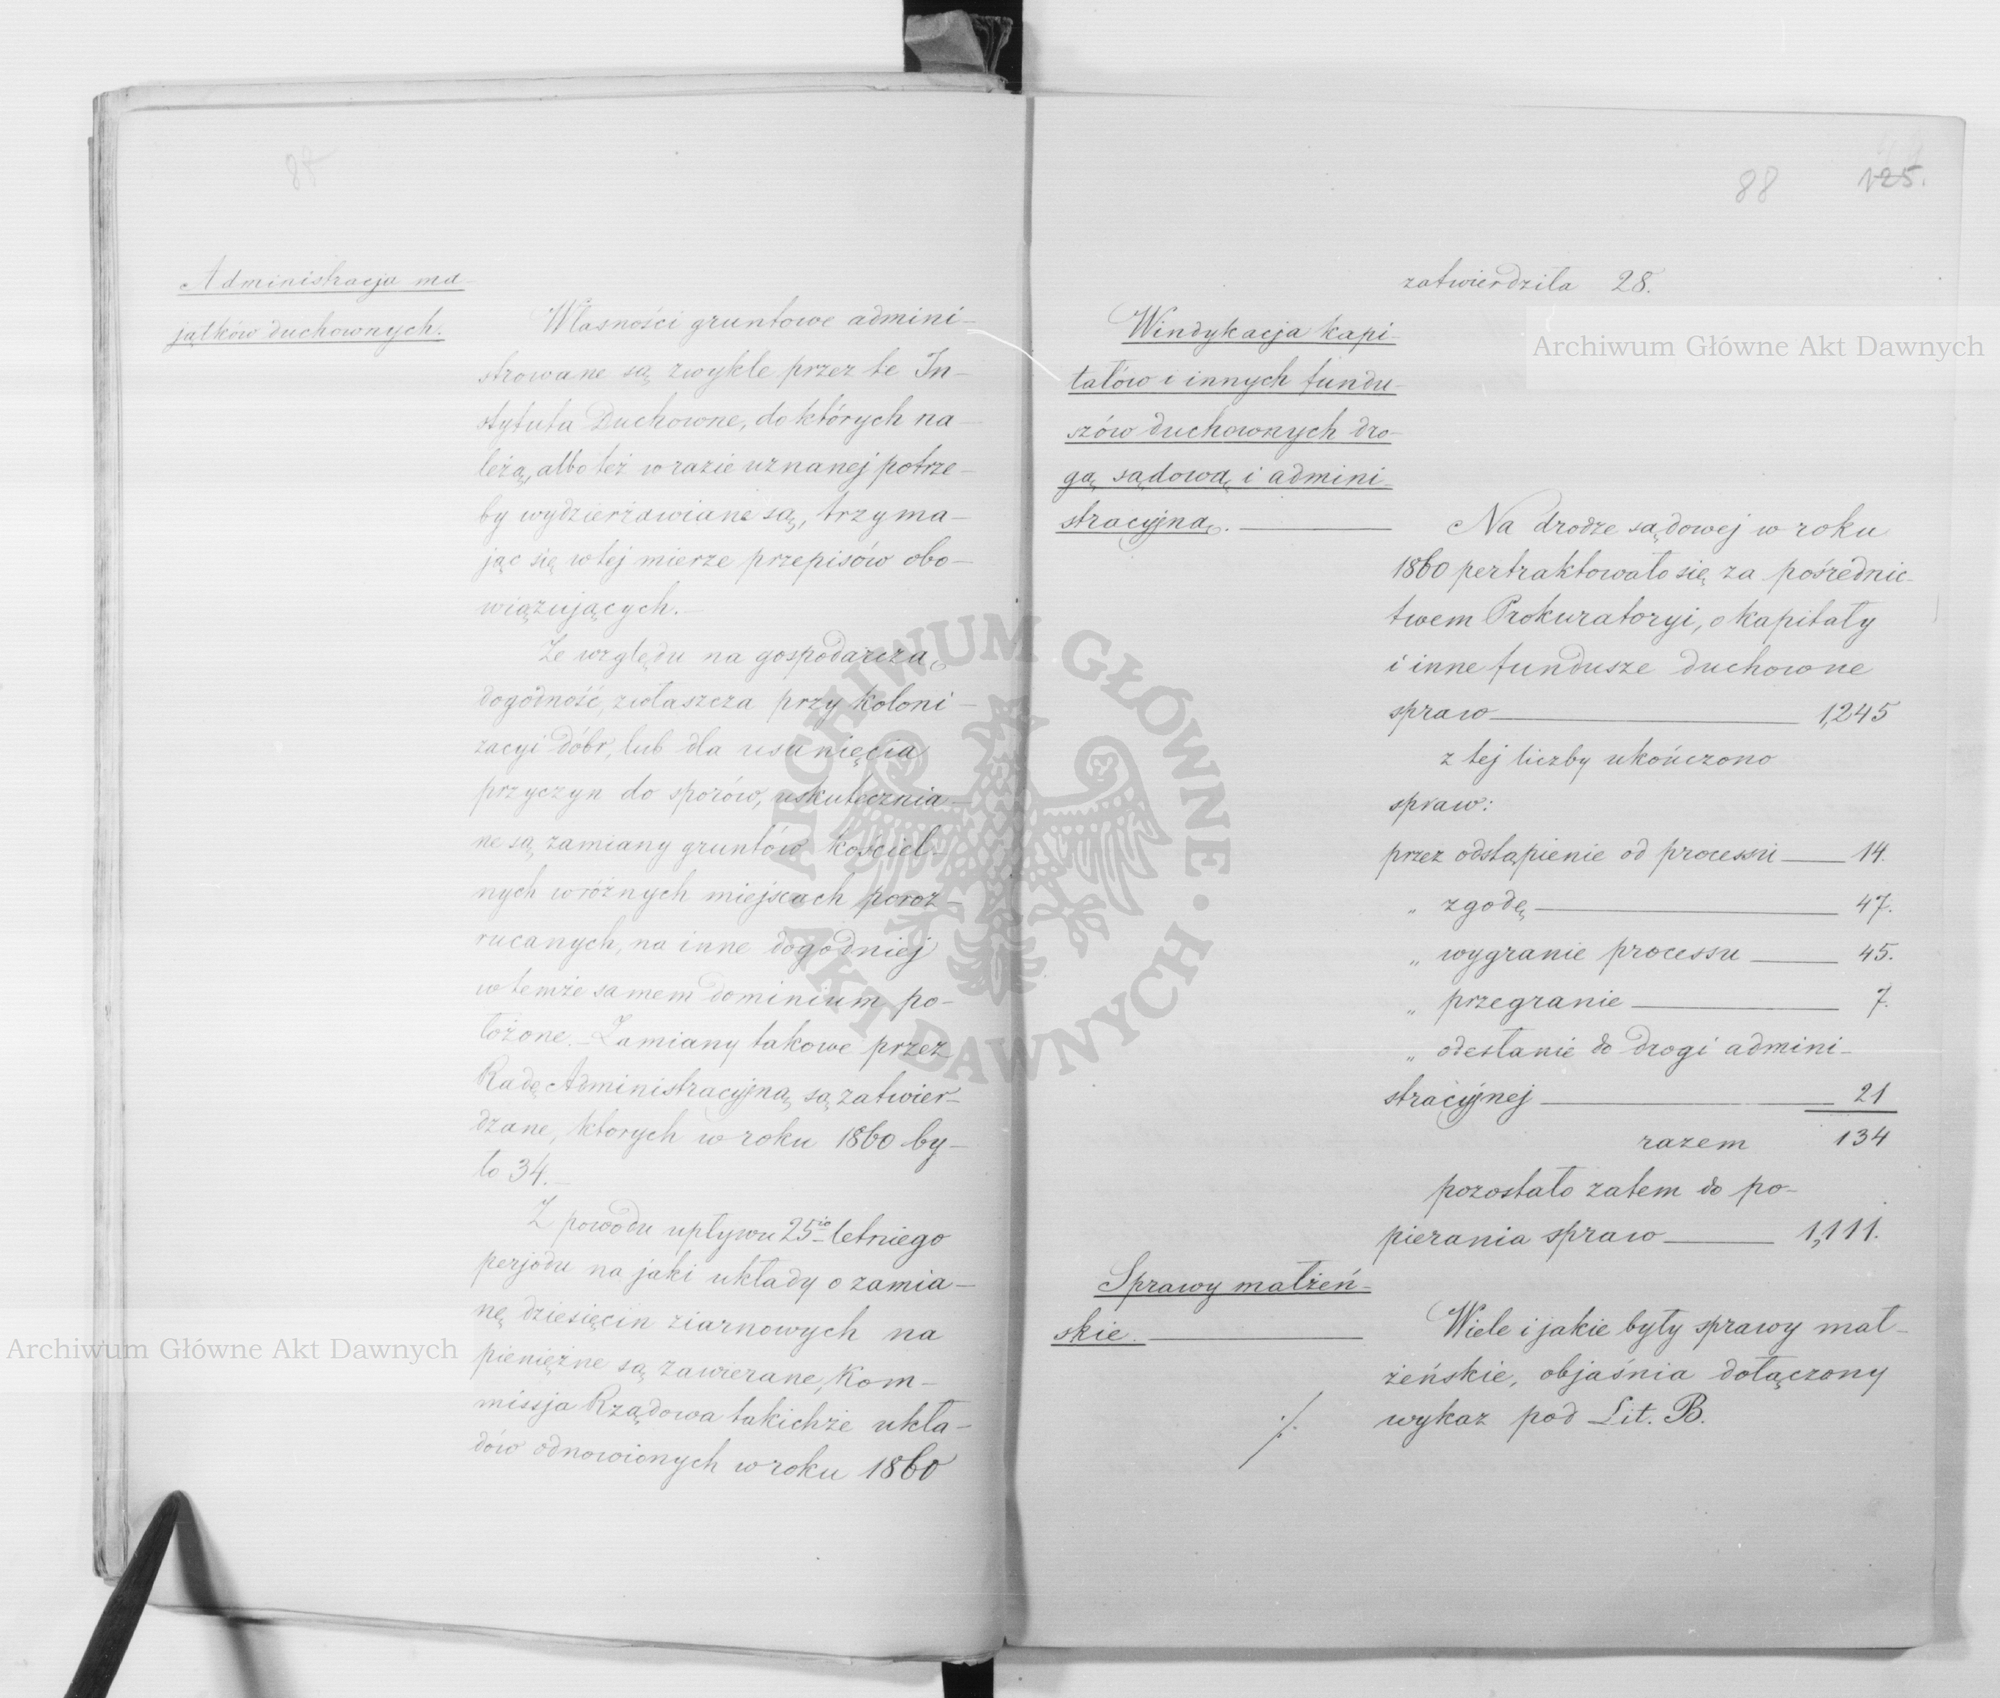 Administracja ma-
jątków duchownych.
Własności gruntowe admini-
strowane są zwykle przez te In-
stytuta Duchowne, do których na-
leżą, albo też w razie uznanej potrze-
by wydzierżawiane są, trzyma-
jąc się w tej mierze przepisów obo-
wiązujących.—
Ze względu na gospodarczą
dogodność, zwłaszcza przy koloni-
zacyi dóbr, lub dla usunięcia
przyczyn do sporów, uskutecznia-
ne są zamiany gruntów kościel-
nych w różnych miejscach poroz-
rucanych, na inne dogodniej
w temże samem dominium po-
łożone.— Zamiany takowe przez
Radę Administracyjną są zatwier-
dzane, ktorych w roku 1860 by-
ło 34.—
Z powodu upływu 25io letniego
perjodu na jaki układy o zamia-
nę dziesięcin ziarnowych na
pieniężne są zawierane, Kom-
missja Rządowa takichże ukła-
dów odnowionych w roku 1860
88 125.
zatwierdziła 28.
Windykacja kapi-
tałów i innych fundu-
szów duchownych dro-
gą sądową i admini-
stracyjną.
Na drodze sądowej w roku
1860 pertraktowało się za pośrednic-
twem Prokuratoryi, o kapitały
i inne fundusze duchowne
spraw 1,245
z tej liczby ukończono
spraw:
przez odstąpienie od processu 14.
„ zgodę 47.
„ wygranie processu 45.
„ przegranie 7.
„ odesłanie do drogi admini-
stracyjnej 21
razem 134
pozostało zatem do po-
pierania spraw 1,111.
Sprawy małżeń-
skie.
Wiele i jakie były sprawy mał-
żeńskie, objaśnia dołączony
·/· wykaz pod Lit. B.
Archiwum Główne Akt Dawnych
Archiwum Główne Akt Dawnych
ARCHIWUM GŁÓWNE · AKT DAWNYCH ·